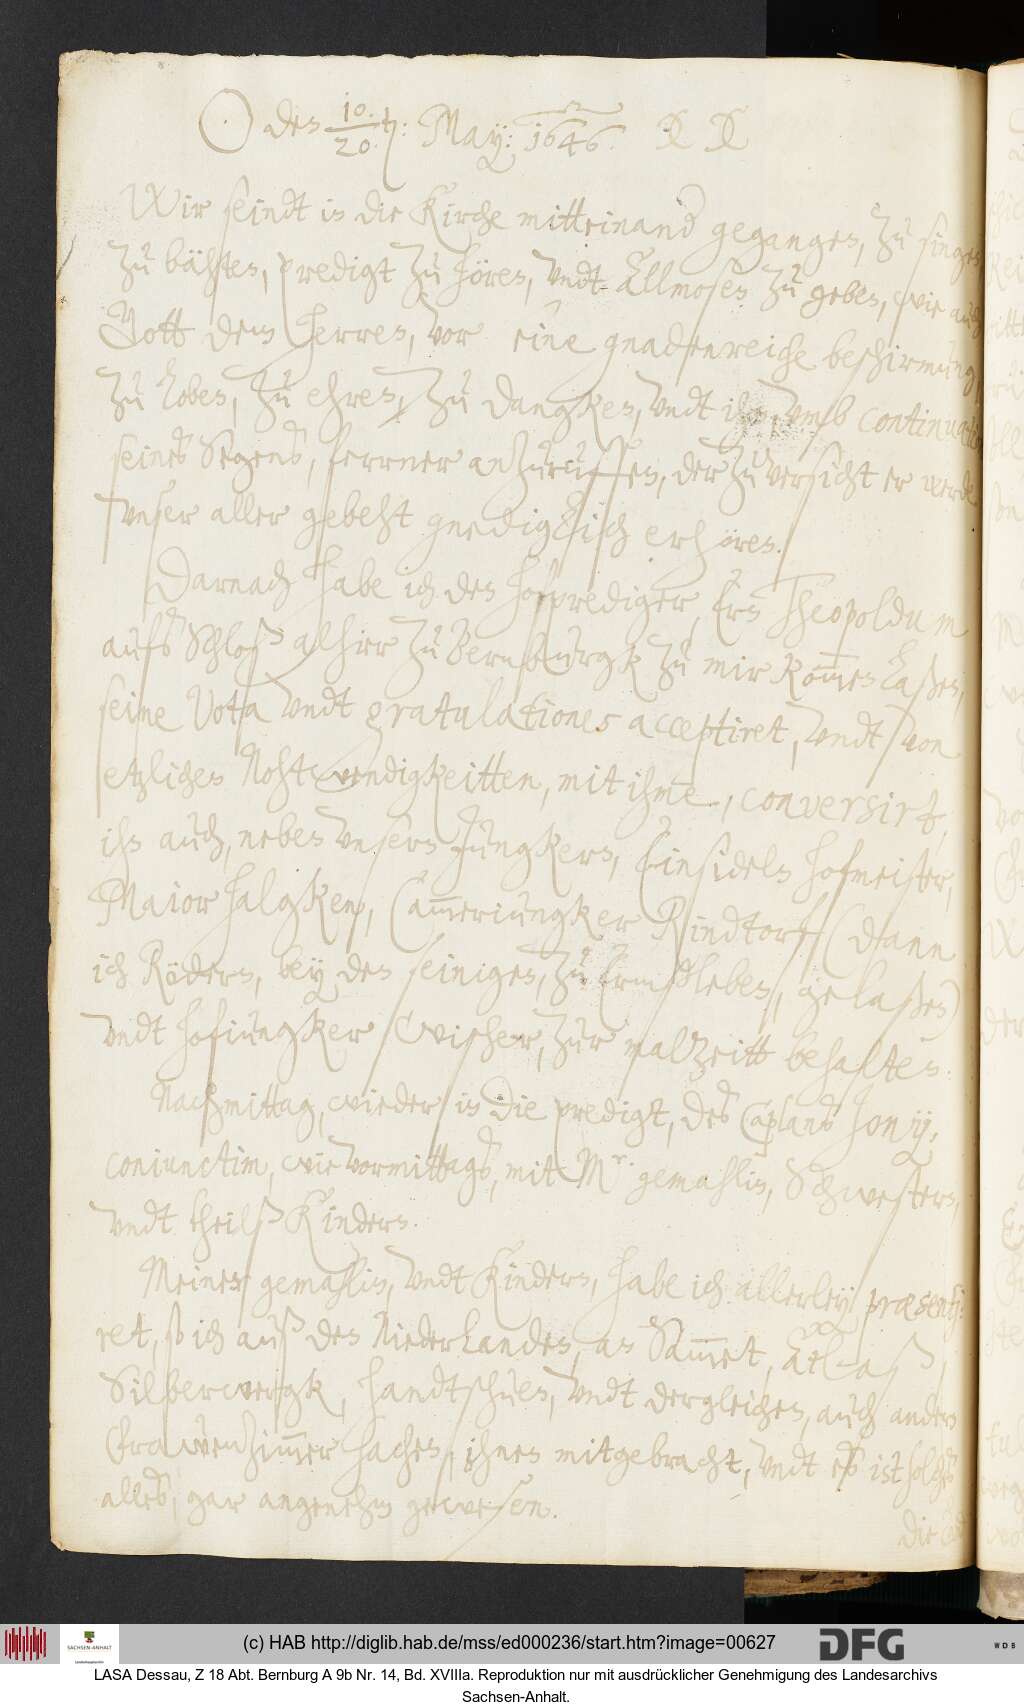 ☉ den 10/20. May: 1646.
Wir seindt in die Kirche mitteinand gegangen, zu singen
zu bähten, predigt zu hören, undt Allmosen zu geben, wie auch
Gott dem Herren, vor eine gnadenreiche beschirmung,
zu loben, zu ehren, zu dangken, undt ihn, umb continuation
seines Segens, ferrner anzuruffen, der zuversicht er werde
unser aller gebeht gnediglich erhören.
Darnach habe ich den hofprediger, Ern Theopoldum
aufs Schloß alhier zu Bernburgk zu mir kommen laßen,
seine Vota undt gratulationes acceptiret, undt von
etzlichen Nohtwendigkeitten, mit ihme, conversirt,
ihn auch, neben unsern Jungkern, Einsidels hofmeister,
Maior Halcken, Cammeriungker Rindtorf (dann
ich Rödern, bey den seinigen, zu Ermßleben, gelaßen)
undt hofiungker Wischer, zur malzeitt behalten.
Nachmittag, wieder in die predigt, des Caplans Jonij,
coniunctim, wie vormittags, mit Mr. gemahlin, Schwestern,
undt theilß Kindern.
Meiner gemahlin, undt Kindern, habe ich allerley præsenti-
ret, so ich auß den Niederlanden, an Sammet, Atlaß,
Silberwergk, handtschuen, undt dergleichen, auch andern
Frawenzimmer sachen, ihnen mitgebracht, undt es ist solches
alles, gar angenehm gewesen.
Die
(c) HAB http://diglib.hab.de/mss/ed000236/start.htm?image=00627
SACHSEN-ANHALT
DFG
WDB
LASA Dessau, Z 18 Abt. Bernburg A 9b Nr. 14, Bd. XVIIIa. Reproduktion nur mit ausdrücklicher Genehmigung des Landesarchivs
Sachsen-Anhalt.